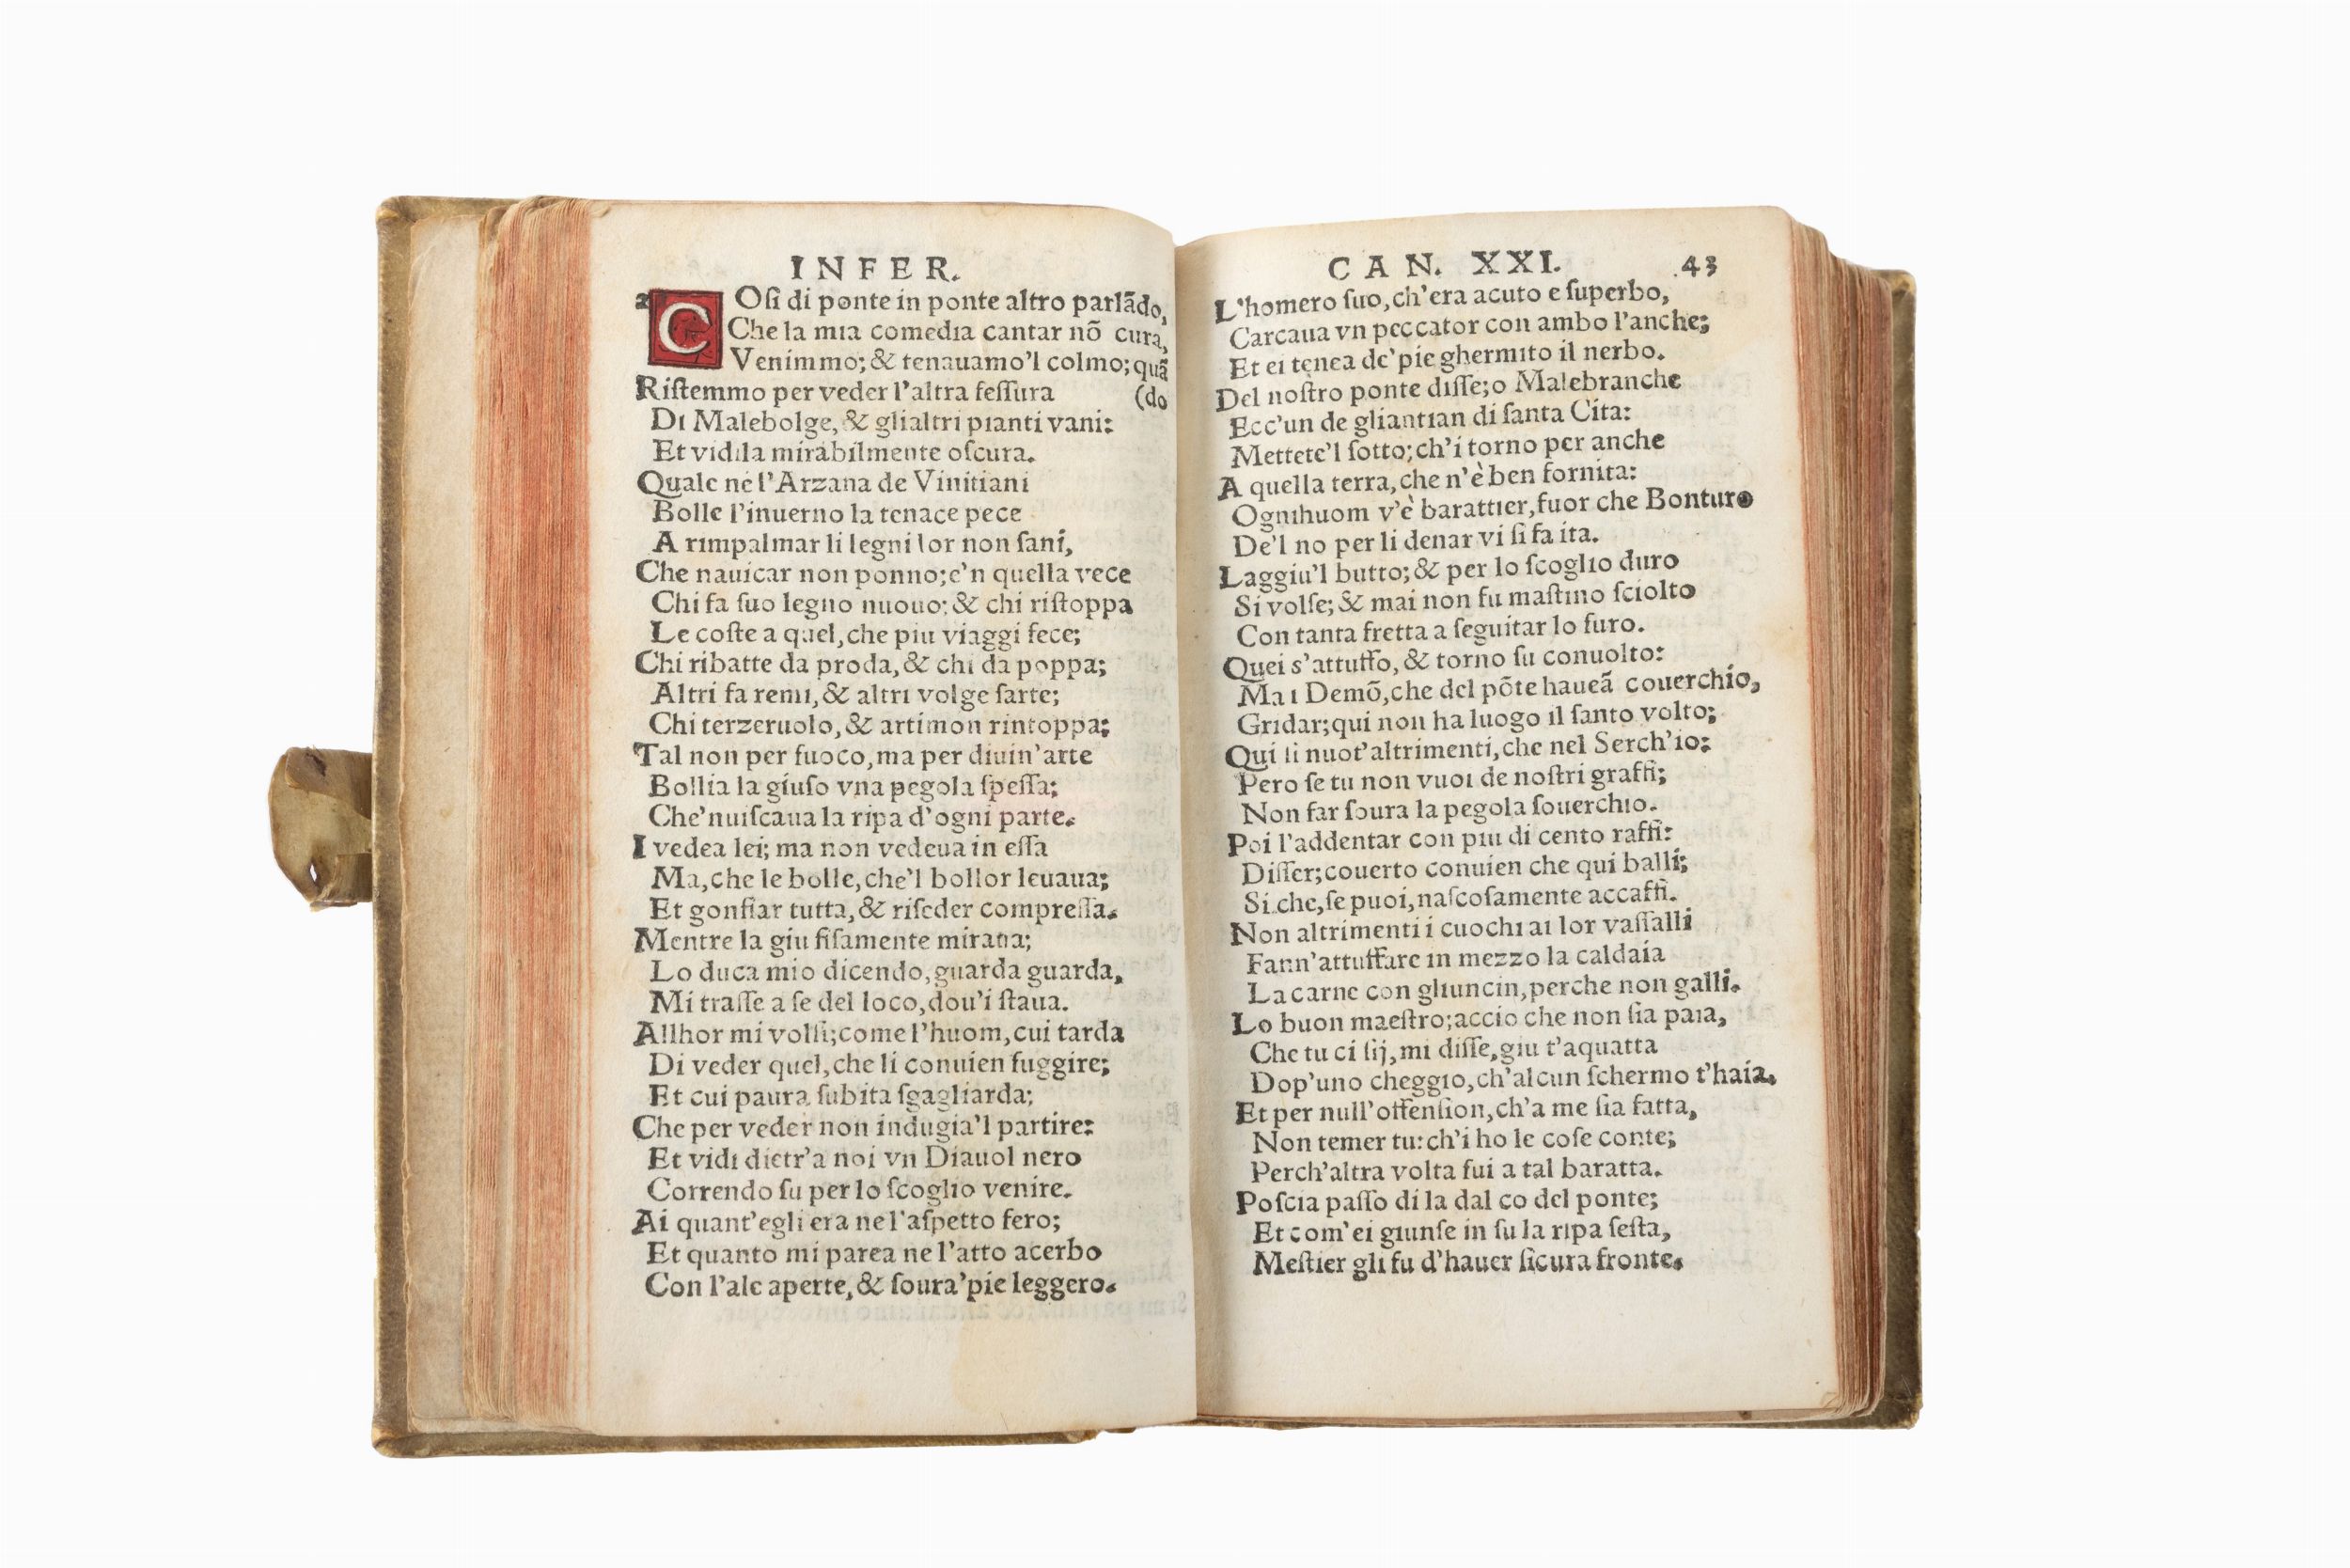 INFER.
COſi di ponte in ponte altro parlādo,
Che la mia comedia cantar nō cura,
Venimmo; & tenauamo'l colmo; quā
Riſtemmo per veder l'altra feſſura (do
Di Malebolge, & glialtri pianti vani:
Et vidila mirabilmente oſcura.
Quale ne l'Arzana de Vinitiani
Bolle l'inuerno la tenace pece
A rimpalmar li legni lor non ſani,
Che nauicar non ponno; e'n quella vece
Chi fa ſuo legno nuouo; & chi riſtoppa
Le coſte a quel, che piu viaggi fece;
Chi ribatte da proda, & chi da poppa;
Altri fa remi, & altri volge ſarte;
Chi terzeruolo, & artimon rintoppa:
Tal non per fuoco, ma per diuin'arte
Bollia la giuſo vna pegola ſpeſſa;
Che'nuiſcaua la ripa d'ogni parte.
I vedea lei; ma non vedeua in eſſa
Ma, che le bolle, che'l bollor leuaua;
Et gonfiar tutta, & riſeder compreſſa.
Mentre la giu fiſamente miraua;
Lo duca mio dicendo, guarda guarda,
Mi traſſe a ſe del loco, dou'i ſtaua.
Allhor mi volſi; come l'huom, cui tarda
Di veder quel, che li conuien fuggire;
Et cui paura ſubita ſgagliarda;
Che per veder non indugia'l partire:
Et vidi dietr'a noi vn Diauol nero
Correndo ſu per lo ſcoglio venire.
Ai quant'egli era ne l'aſpetto fero;
Et quanto mi parea ne l'atto acerbo
Con l'ale aperte, & ſoura'pie leggero.
CAN. XXI. 43
L'homero ſuo, ch'era acuto e ſuperbo,
Carcaua vn peccator con ambo l'anche;
Et ei tenea de'pie ghermito il nerbo.
Del noſtro ponte diſſe; o Malebranche
Ecc'un de gliantian di ſanta Cita:
Mettete'l ſotto; ch'i torno per anche
A quella terra, che n'è ben fornita:
Ognihuom v'è barattier, fuor che Bonturo
De'l no per li denar vi ſi fa ita.
Laggiu'l butto; & per lo ſcoglio duro
Si volſe; & mai non fu maſtino ſciolto
Con tanta fretta a ſeguitar lo furo.
Quei s'attuffo, & torno ſu conuolto:
Ma i Demō, che del pōte haueā couerchio,
Gridar; qui non ha luogo il ſanto volto;
Qui ſi nuot'altrimenti, che nel Serch'io:
Pero ſe tu non vuoi de noſtri graffi;
Non far ſoura la pegola ſouerchio.
Poi l'addentar con piu di cento raffi:
Diſſer; couerto conuien che qui balli;
Si che, ſe puoi, naſcoſamente accaffi.
Non altrimenti i cuochi ai lor vaſſalli
Fann'attuffare in mezzo la caldaia
La carne con gliuncin, perche non galli.
Lo buon maeſtro; accio che non ſia paia,
Che tu ci ſij, mi diſſe, giu t'aquatta
Dop'uno cheggio, ch'alcun ſchermo t'haia.
Et per null'offenſion, ch'a me ſia fatta,
Non temer tu: ch'i ho le coſe conte;
Perch'altra volta fui a tal baratta.
Poſcia paſſo di la dal co del ponte;
Et com'ei giunſe in ſu la ripa ſeſta,
Meſtier gli fu d'hauer ſicura fronte.